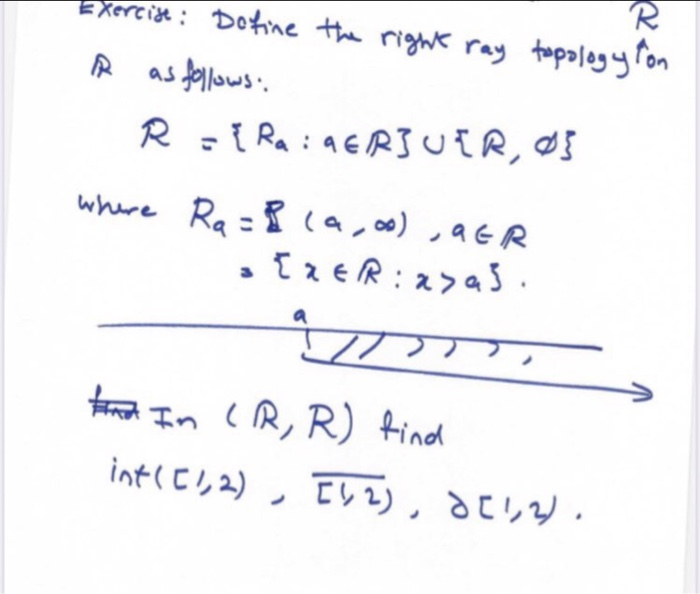 R
Exercise: Define the right ray topology ↑ on
ℝ as follows:
R = {Ra : a∈ℝ} ∪ {ℝ, ∅}
where Ra = (a, ∞), a∈ℝ
= {x∈ℝ : x>a}.
a
find In (ℝ, R) find
int([1,2)), \overline{[1,2)}, ∂[1,2).